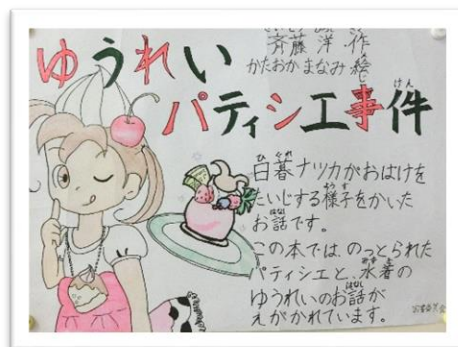 ゆうれい
パティシエ事件
斉藤洋 作
かたおかまなみ 絵
日暮ナツカがおばけを
たいじする様子をかいた
お話です。
この本では、のっとられた
パティシエと、水着の
ゆうれいのお話が
えがかれています。